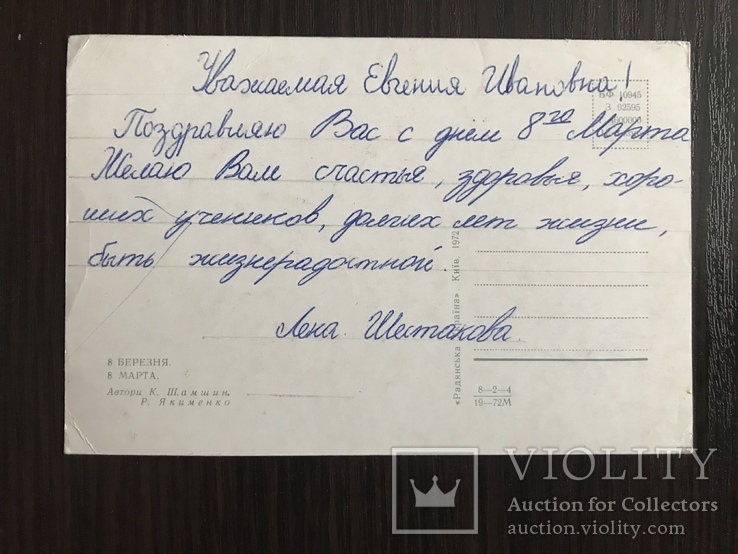 Уважаемая Евгения Ивановна!
Поздравляю Вас с днём 8го Марта
Желаю Вам счастья, здоровья, хоро-
ших учеников, долгих лет жизни,
быть жизнерадостной.
Лена Шестакова.
БФ 10945
З. 02595
000000
8 БЕРЕЗНЯ.
8 МАРТА.
Автори К. Шамшин,
Р. Якименко
«Радянська Україна». Київ. 1972
8—2—4
19—72М
VIOLITY
Auction for Collectors
auction.violity.com